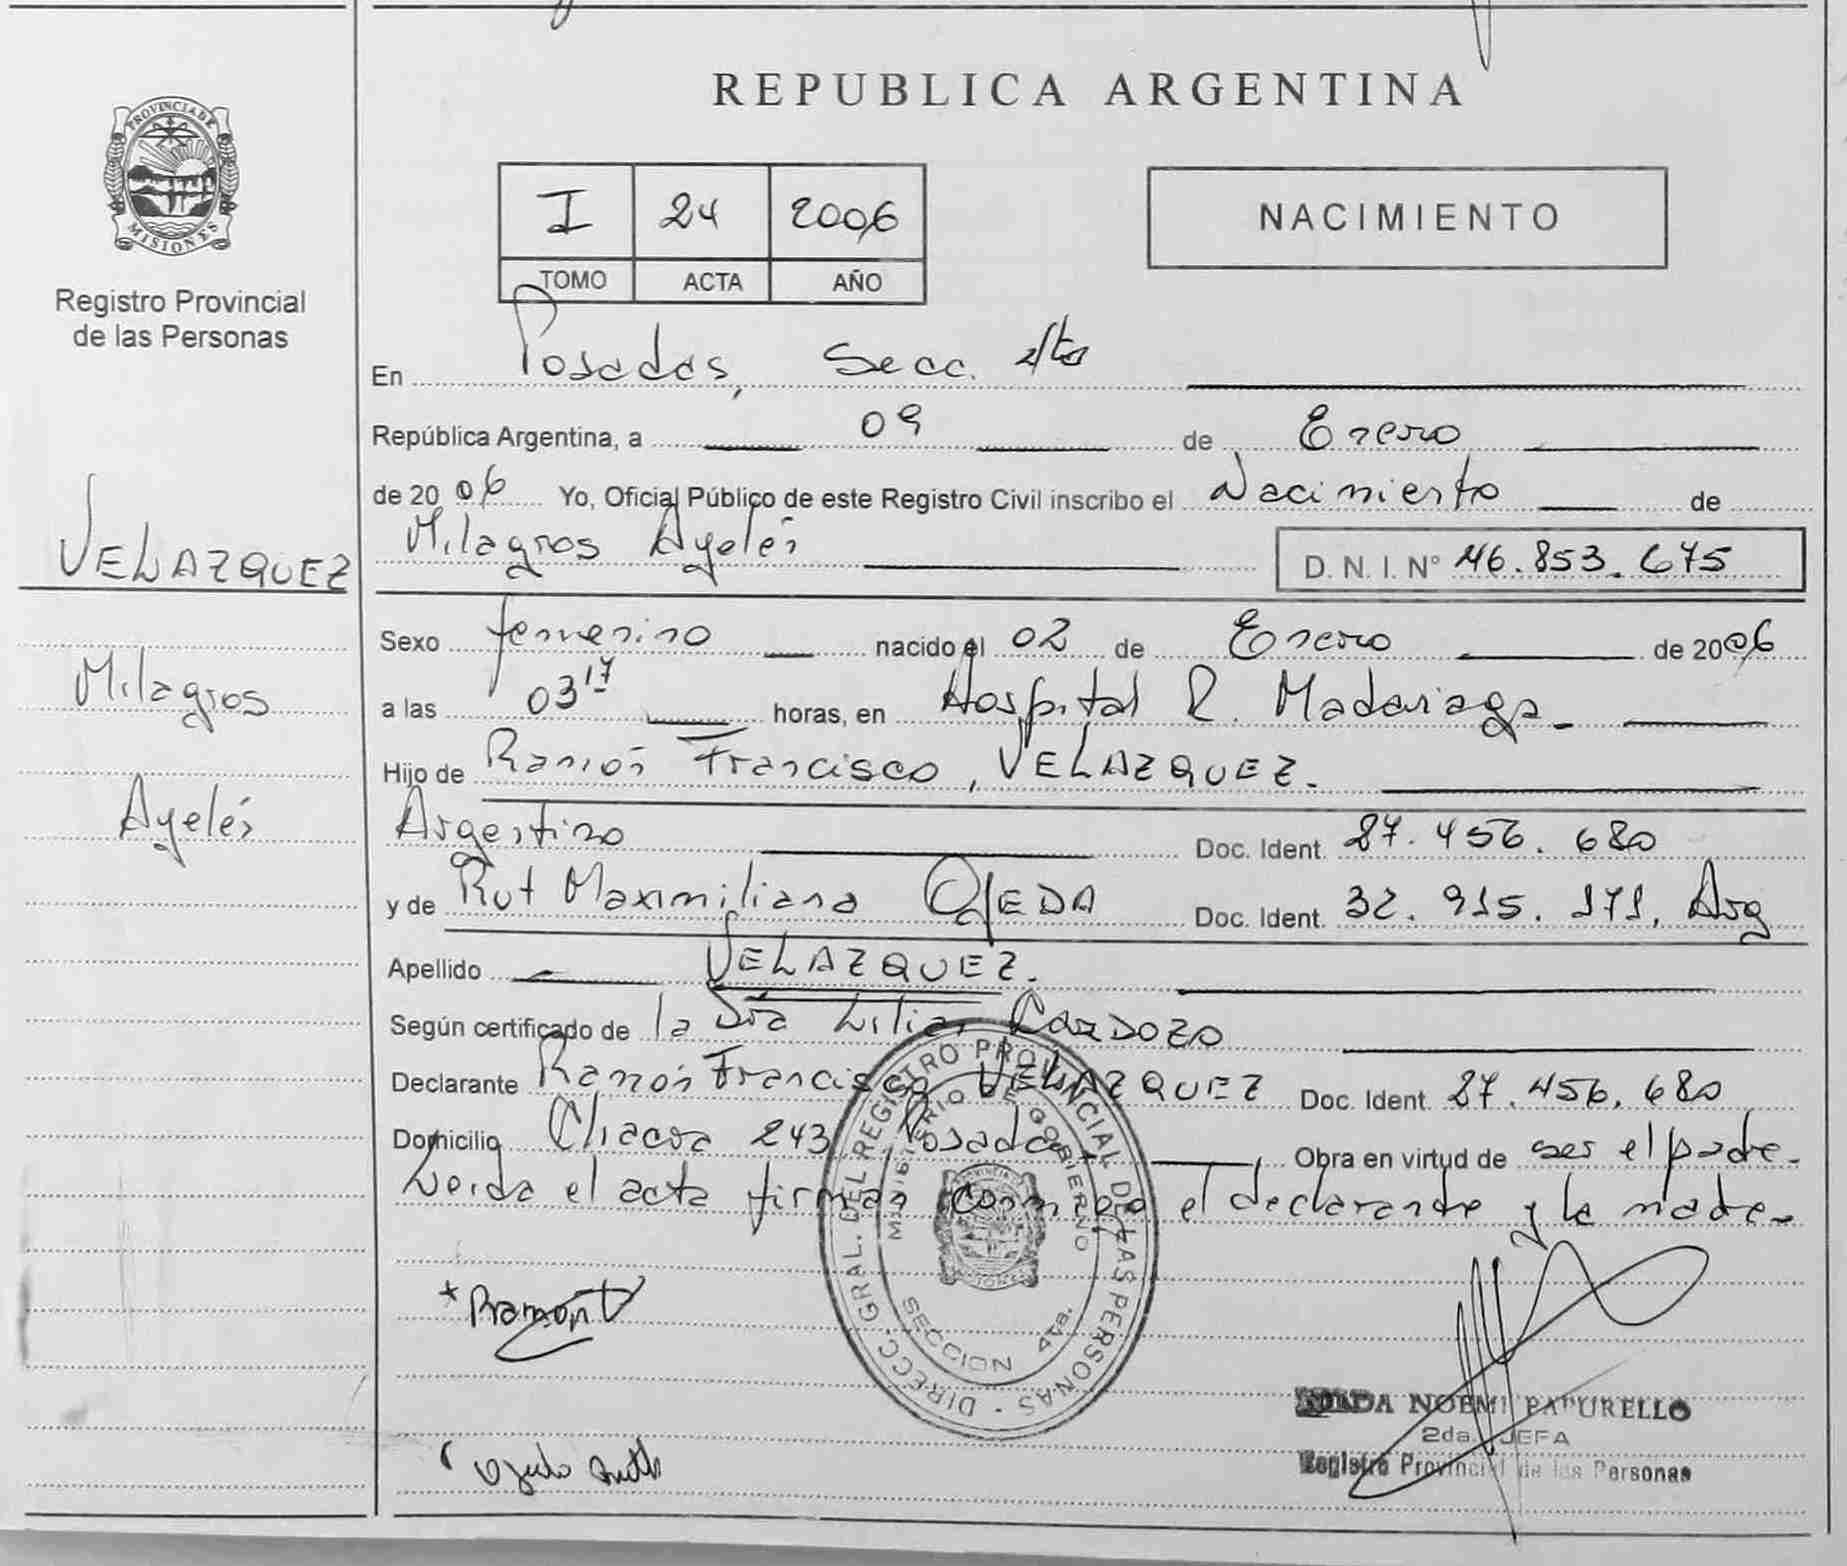 REPUBLICA ARGENTINA
PROVINCIA DE MISIONES
Registro Provincial
de las Personas
I 24 2006
TOMO ACTA AÑO
NACIMIENTO
En Posadas, Secc. 4ta
República Argentina, a 09 de Enero
de 2006 Yo, Oficial Público de este Registro Civil inscribo el Nacimiento de
Milagros Ayelén D. N. I. Nº 46.853.675
VELAZQUEZ
Milagros
Ayelén
Sexo femenino nacido el 02 de Enero de 2006
a las 03 17 horas, en Hospital R. Madariaga
Hijo de Ramón Francisco, VELAZQUEZ.
Argentino Doc. Ident. 27.456.680
y de Rut Maximiliana OJEDA Doc. Ident. 32.915.171, Arg
Apellido VELAZQUEZ.
Según certificado de la Dra Lilian CARDOZO
Declarante Ramón Francisco VELAZQUEZ Doc. Ident. 27.456.680
Domicilio Chacra 243 Posadas Obra en virtud de ser el padre.
Leida el acta firman conmigo el declarante y la madre.
DIRECC. GRAL. DEL REGISTRO PROVINCIAL DE LAS PERSONAS
MINISTERIO DE GOBIERNO
SECCION 4ta.
Ramón V
NOEMI PAPURELLO
2da. JEFA
Registro Provincial de las Personas